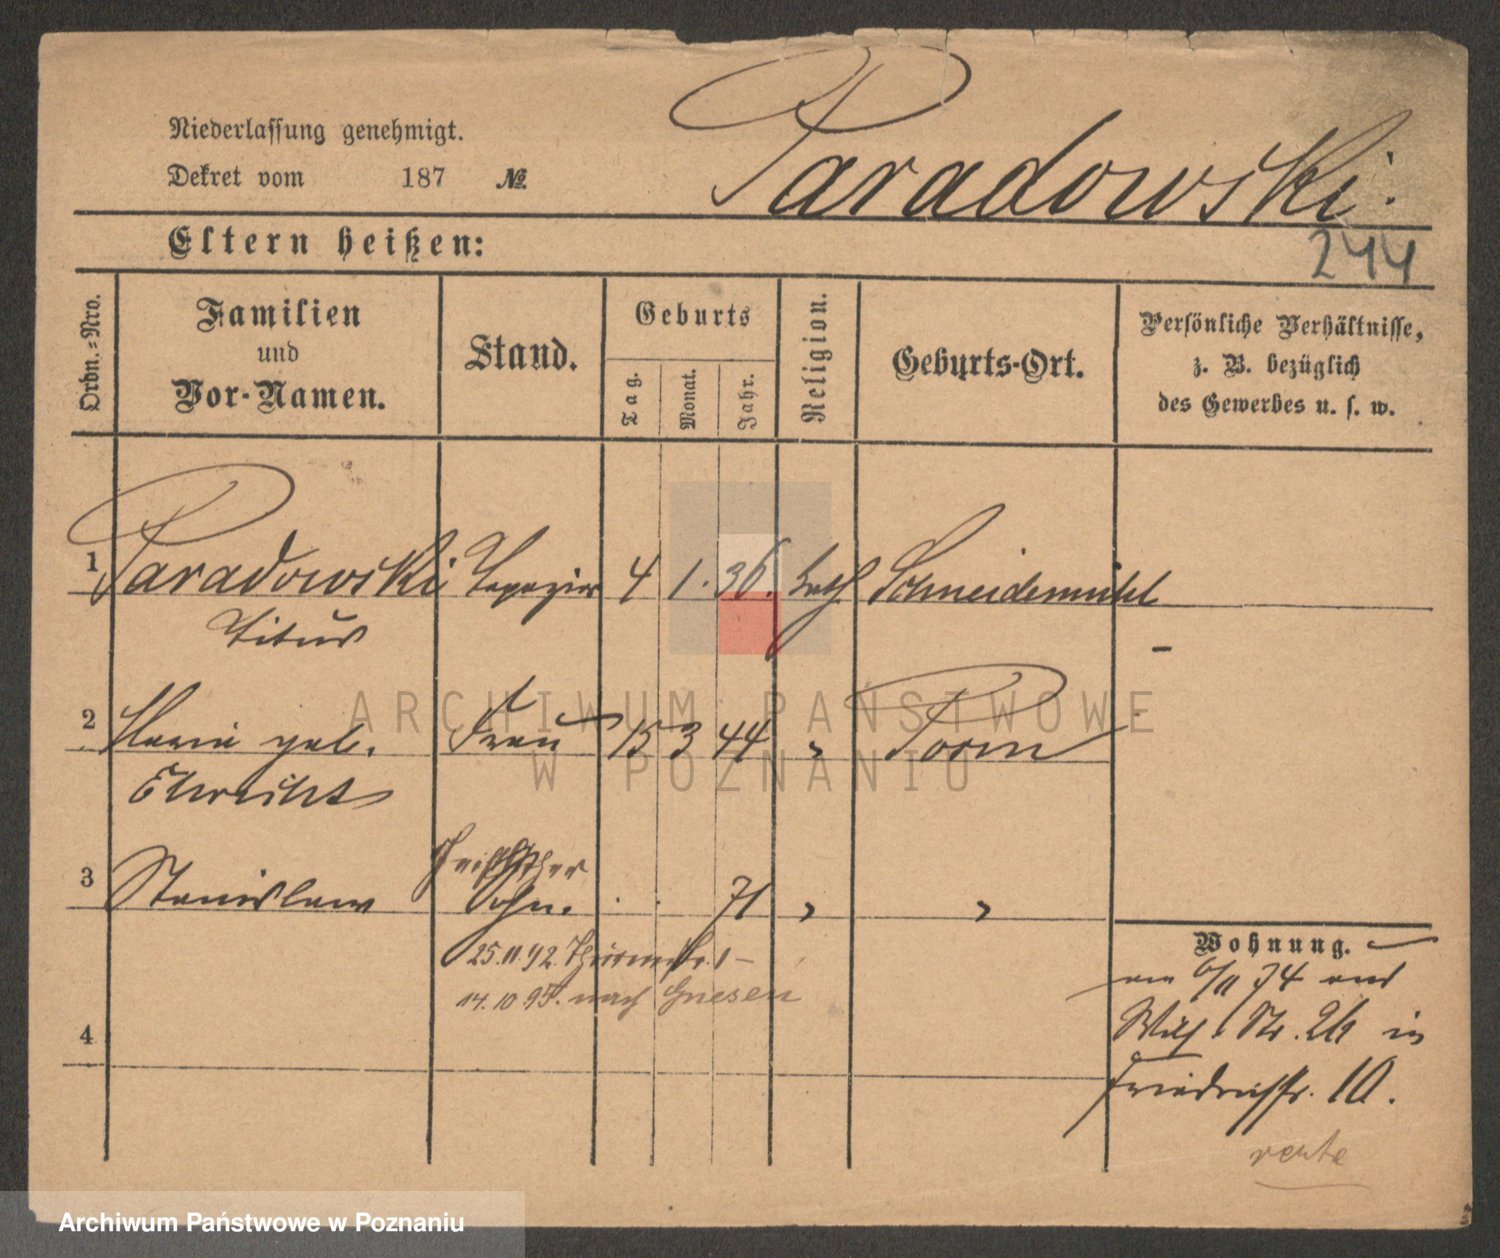 Niederlassung genehmigt.
Dekret vom 187 №
Paradowski.
244
Eltern heißen:
Ordn.-Nro.
Familien
und
Vor-Namen.
Stand.
Geburts
Tag.
Monat.
Jahr.
Religion.
Geburts-Ort.
Persönliche Verhältnisse,
z. B. bezüglich
des Gewerbes u. s. w.
1 Paradowski Tapezier 4 1. 36. kath Schneidemühl
Titus
2 Maria geb. Frau 15 3 44 " Posen
3 Stanislaw Sohn. . . 71 " "
25.11.92. Thurmstr. 1
14.10.95. nach Gnesen
4
Wohnung.
am 6/11 74 aus
Wilh. Str. 26 in
Friedrichstr. 10.
ARCHIWUM PAŃSTWOWE
W POZNANIU
Archiwum Państwowe w Poznaniu